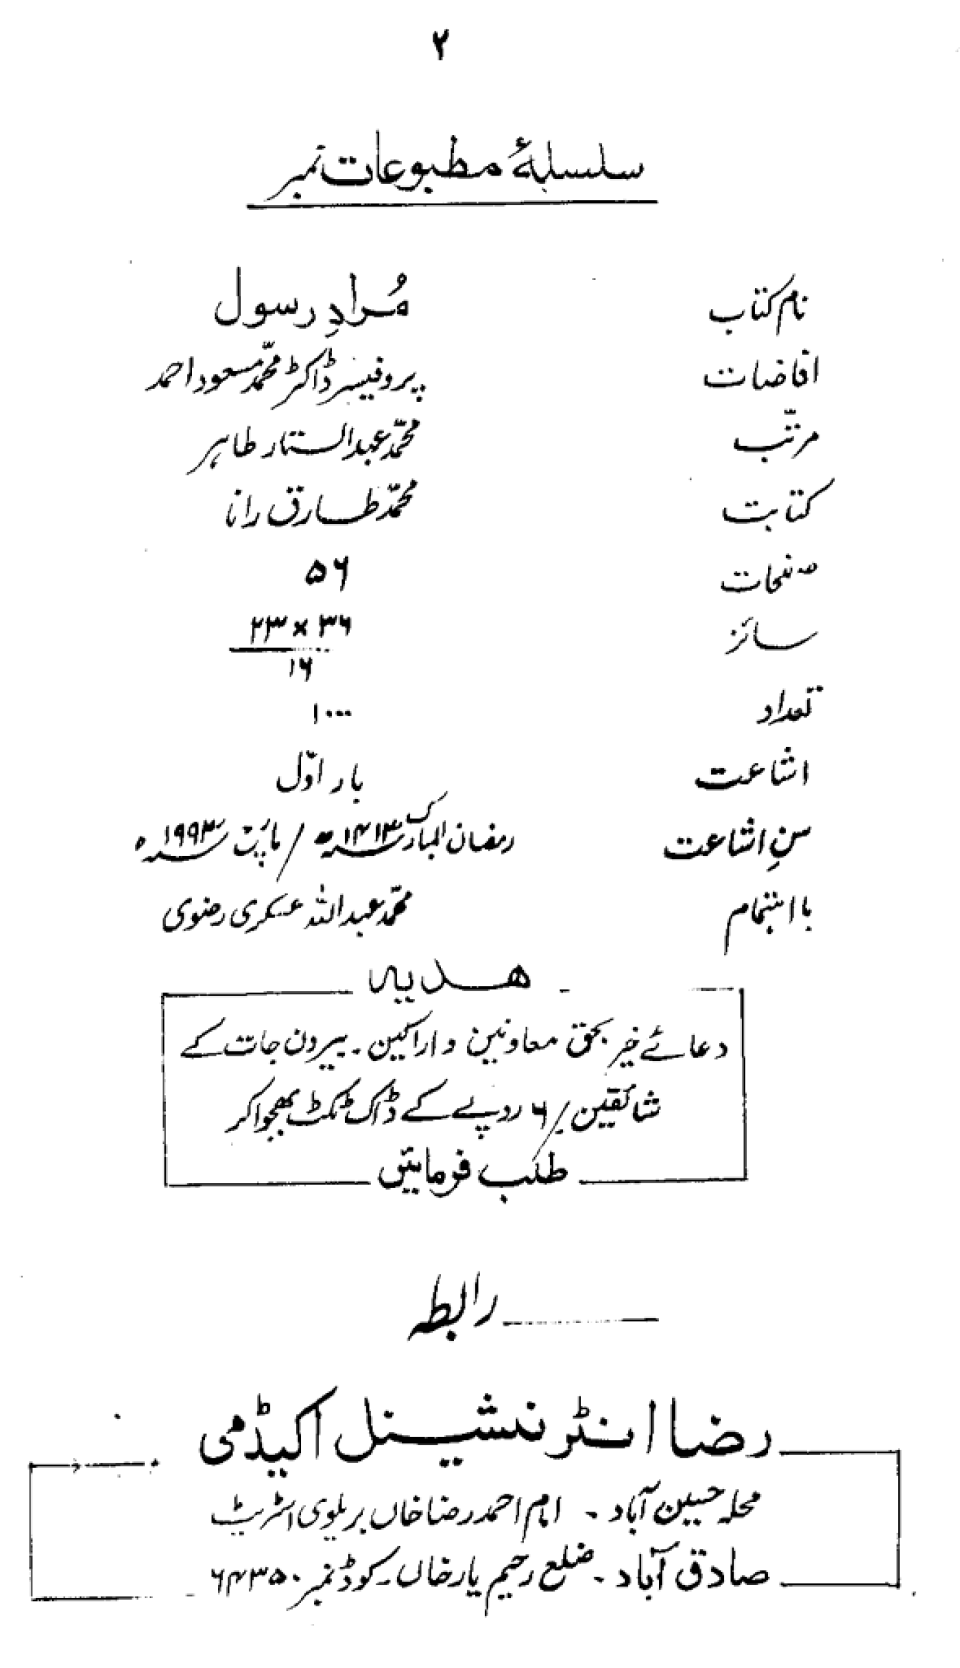 ۲
سلسلۂ مطبوعات نمبر
نام کتاب مُرادِ رسول
افاضات پروفیسر ڈاکٹر محمّد مسعود احمد
مرتّب محمّد عبدالستار طاہر
کتابت محمّد طارق رانا
صفحات ۵۶
سائز ۲۳ × ۳۶
۱۶
تعداد ۱۰۰۰
اشاعت بار اوّل
سنِ اشاعت رمضان المبارک ۱۴۱۳ھ / مارچ ۱۹۹۳ء
با اہتمام محمّد عبداللہ عسکری رضوی
ھدیہ
دعائے خیر بحق معاونین و اراکین ۔ بیرون جات کے
شائقین /۶ روپے کے ڈاک ٹکٹ بھجوا کر
طلب فرمائیں
رابطہ
رضا انٹرنیشنل اکیڈمی
محلہ حسین آباد ۔ امام احمد رضا خاں بریلوی اسٹریٹ
صادق آباد ۔ ضلع رحیم یار خاں ۔ کوڈ نمبر ۶۴۳۵۰